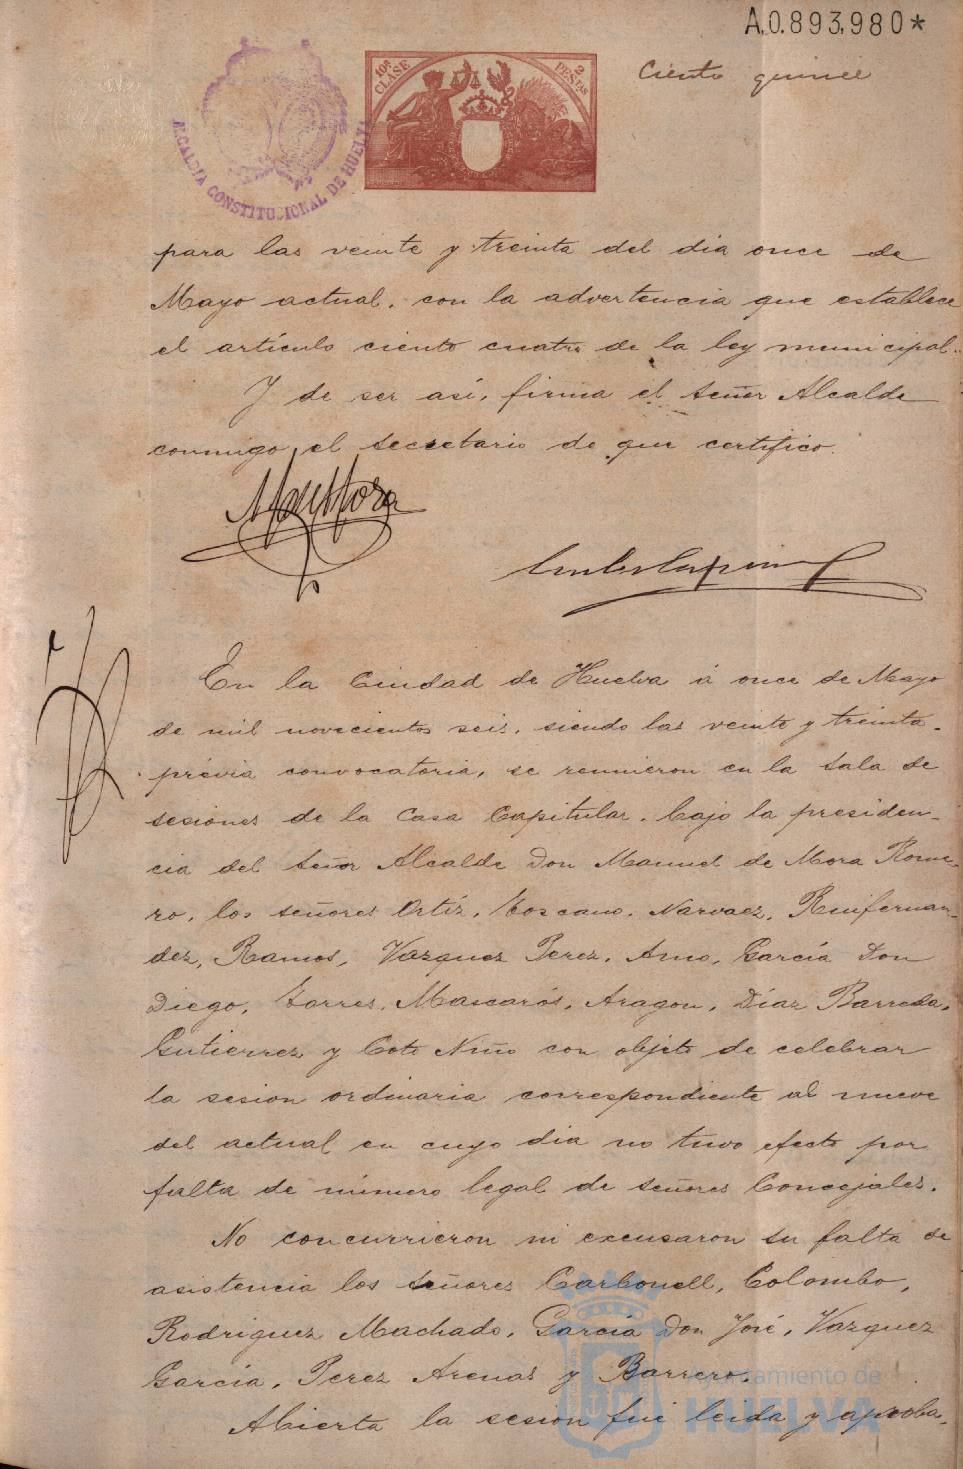 A.0.893,980*
Ciento quince
10ª CLASE 2 PESETAS
ALCALDIA CONSTITUCIONAL DE HUELVA
para las veinte y treinta del dia once de
Mayo actual, con la advertencia que establece
el artículo ciento cuatro de la ley municipal.
Y de ser así, firma el señor Alcalde
conmigo el secretario de que certifico.
En la Ciudad de Huelva á once de Mayo
de mil novecientos seis, siendo las veinte y treinta
prévia convocatoria, se reunieron en la sala de
sesiones de la Casa Capitular, bajo la presiden-
cia del señor Alcalde Don Manuel de Mora Rome-
ro, los señores Ortíz, Toscano, Narvaez, Ruifernan-
dez, Ramos, Vazquez Perez, Amo, García Don
Diego, Torres, Mascarós, Aragon, Díaz Barreda,
Gutierrez y Coto Niño con objeto de celebrar
la sesion ordinaria correspondiente al nueve
del actual en cuyo dia no tuvo efecto por
falta de número legal de señores Concejales.
No concurrieron ni excusaron su falta de
asistencia los señores Carbonell, Colombo,
Rodriguez Machado, García Don José, Vazquez
García, Perez Arenas y Barrero.
Abierta la sesion fué leida y aproba-
Ayuntamiento de
HUELVA